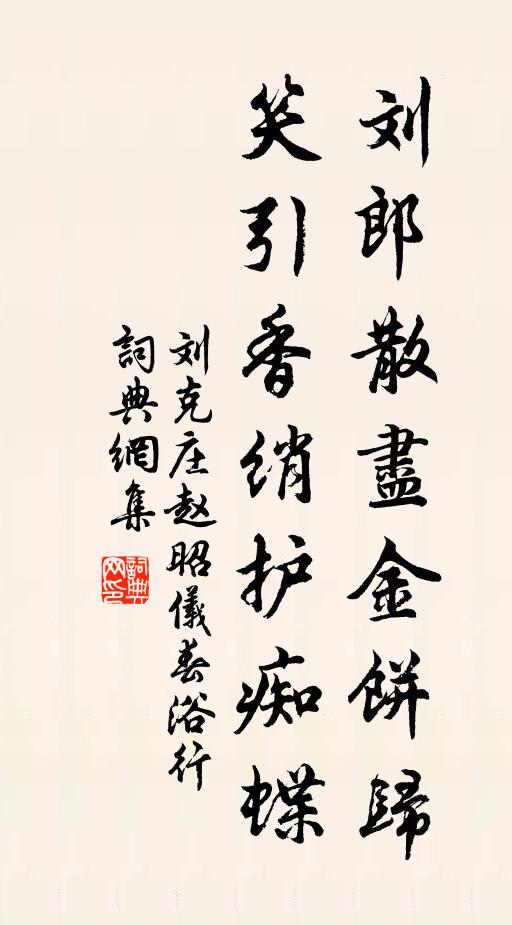 刘郎散盡金餅歸
笑引香绡护痴蝶
刘克庄赵昭儀春浴行
詞典網集
詞典网印